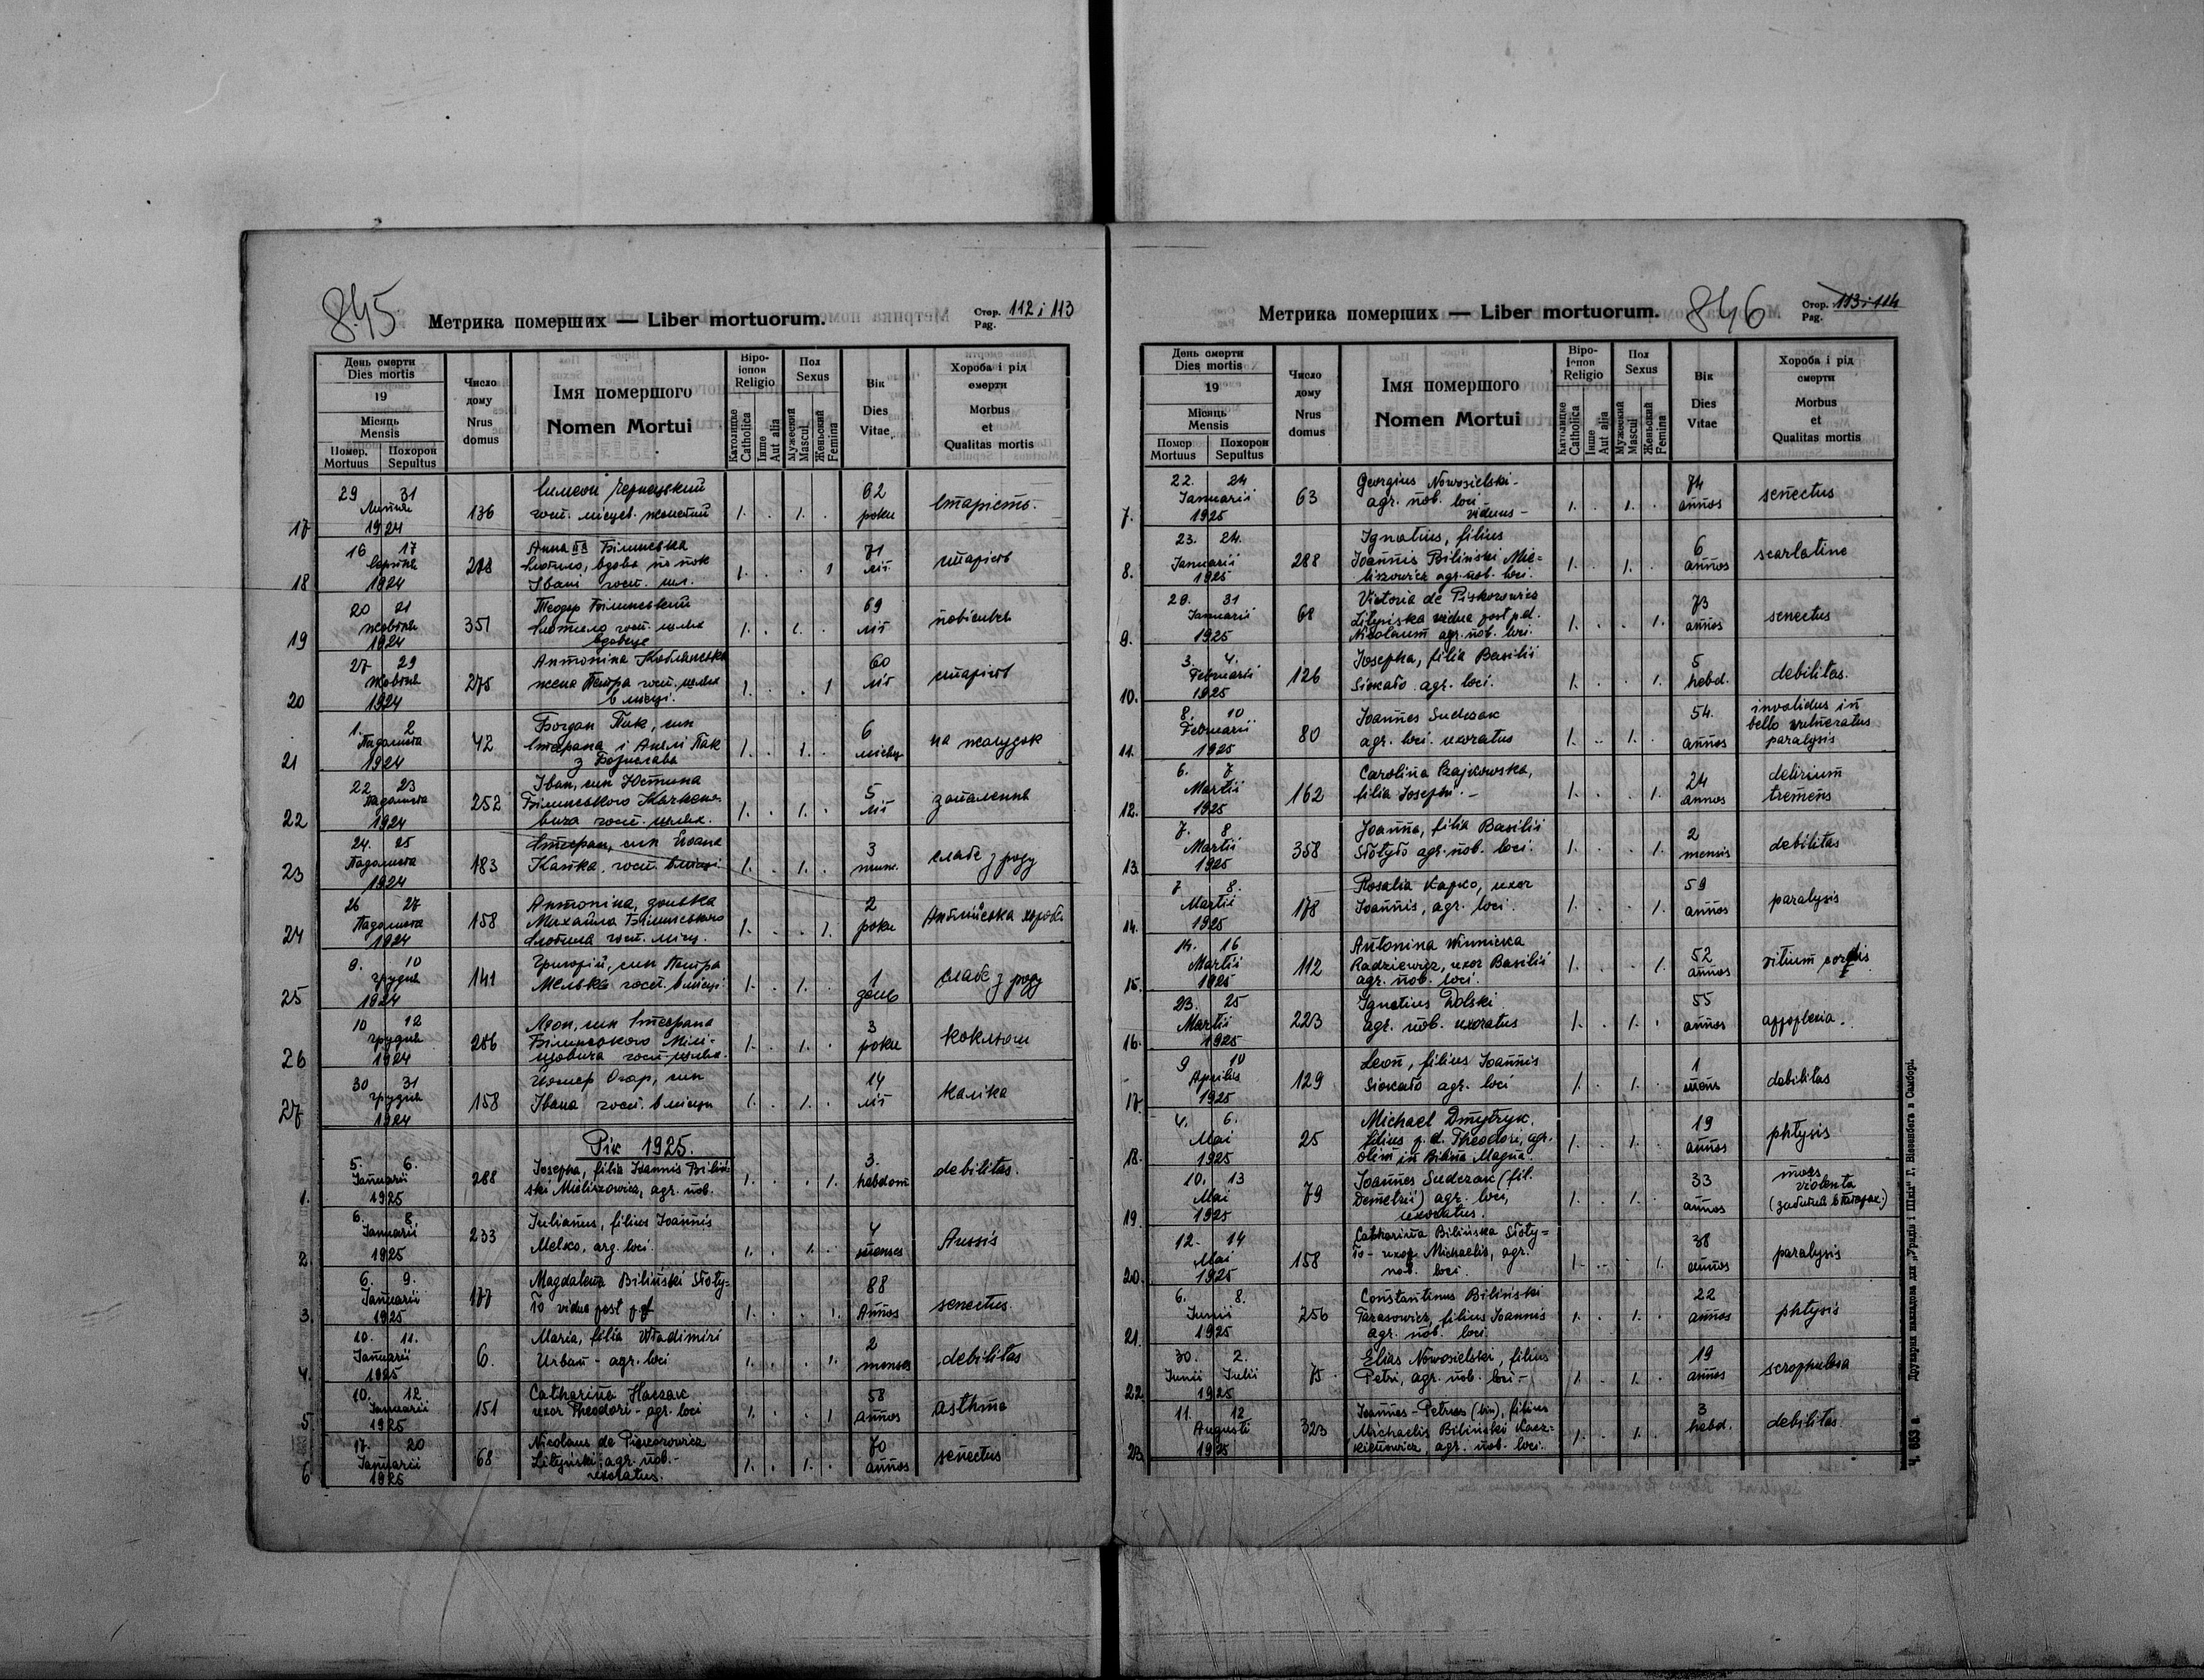 845
Метрика померших — Liber mortuorum.
Стор. Pag. 112 i 113
День смерти
Dies mortis
19
Місяць
Mensis
Помер, Mortuus
Похорон Sepultus
Число
дому
Nrus
domus
Імя помершого
Nomen Mortui
Віро-
іспов
Religio
Католицке Catholica
Інше Aut alia
Пол
Sexus
Мужеский Mascul
Женьский Femina
Вік
Dies
Vitae
Хороба і рід
смерти
Morbus
et
Qualitas mortis
17
29 31
Липня
1924
136
Симеон
госп. місцев. жонатий
1. . 1. .
62
роки
старість.
18
16 17
Серпня
1924
278
Анна Білинська
вдова по пок
Івані госп.
1. . . 1
71
літ
старість
19
20 21
жовтня
1924
351
Теодор Білинський
госп.
вдовець
1. . 1. .
69
літ
20
27 29
жовтня
1924
275
Антоніна
жена Петра госп.
в місци.
1. . . 1
60
літ
старість
21
1. 2
Падолиста
1924
42
Богдан Пак, син
Стефана і Анелі Пак
з Борислава
1. . 1. .
6
місяц
на жолудок
22
22 23
Падолиста
1924
252
Іван, син Юстина
Білинського
госп.
1. . 1. .
5
літ
запалення
23
24. 25
Падолиста
1924
183
Стефан, син Івана
госп. в місци
1. . 1. .
3
тижн.
слабе з роду
24
26 27
Падолиста
1924
158
Антоніна, донька
Михайла Білинського
госп. місц.
1. . . 1.
2
роки
Англійська хороба
25
9. 10
грудня
1924
141
Григорій, син Петра
Мелька госп. в місци
1. . 1. .
1
день
слабе з роду
26
10 12
грудня
1924
286
Леон, син Стефана
Білинського Мілі-
шовича госп.
1. . 1. .
3
роки
коклюш
27
30 31
грудня
1924
158
син
Івана госп. в місци
1. . 1. .
14
літ
каліка
Рік 1925.
1.
5. 6.
Januarii
1925
288
Josepha, filia Joannis Biliń
ski Mieliszowicz, agr. nob.
1. . . 1.
3.
hebdom
debilitas.
2.
6. 8.
Januarii
1925
233
Julianus, filius Joannis
Melko, arg. loci.
1. . 1. .
4
menses
Tussis
3.
6. 9.
Januarii
1925
177
Magdalena Biliński Słoty-
ło vidua post
1. . . 1.
88
Annos
senectus.
4.
10. 11.
Januarii
1925
6.
Maria, filia Władimiri
Urban - agr. loci
1. . . 1.
2
menses
debilitas
5
10. 12
Januarii
1925
151
Catharina Haczak
uxor Theodori - agr. loci
1. . . 1
58
annos
asthma
6
17. 20
Januarii
1925
68
Nicolaus de Piskorowicz
Lityński agr. nob. -
uxoratus.
1. . 1. .
70
annos
senectus
846
Метрика померших — Liber mortuorum.
Стор. Pag. 113 i 114
День смерти
Dies mortis
19
Місяць
Mensis
Помер Mortuus
Похорон Sepultus
Число
дому
Nrus
domus
Імя помершого
Nomen Mortui
Віро-
іспов
Religio
Католицке Catholica
Інше Aut alia
Пол
Sexus
Мужеский Mascul
Женьский Femina
Вік
Dies
Vitae
Хороба і рід
смерти
Morbus
et
Qualitas mortis
7.
22. 24
Januarii
1925
63
Georgius Nowosielski -
agr. nob. loci
viduus -
1. . 1. .
74
annos
senectus
8.
23. 24.
Januarii
1925
288
Ignatius, filius
Joannis Biliński Mie-
liszowicz agr. nob. loci.
1. . 1. .
6
annos
scarlatine
9.
29. 31
Januarii
1925
68
Victoria de Piskorowicz
Lityńska vidua post p.d.
Nicolaum agr. nob. loci.
1. . . 1.
73
annos
senectus
10.
3. 4.
Februarii
1925
126
Josepha, filia Basilii
Siokało agr. loci.
1. . . 1.
5
hebd.
debilitas.
11.
8. 10
Februarii
1925
80
Joannes Sudczak
agr. loci. uxoratus
1. . 1. .
54.
annos
invalidus in
bello vulneratus
paralysis
12.
6. 7
Martii
1925
162
Carolina Czajkowska,
filia Josephi. -
1. . . 1.
24
annos
delirium
tremens
13.
7. 8
Martii
1925
358
Joanna, filia Basilii
Słotyło agr. nob. loci.
1. . . 1.
2
mensis
debilitas
14.
7 8.
Martii
1925
178
Rosalia Kapko, uxor
Joannis, agr. loci.
1. . . 1.
59
annos
paralysis
15.
14. 16
Martii
1925
112
Antonina Winnicka
Radziewicz, uxor Basilii
agr. nob. loci.
1. . . 1.
52
annos
vitium cordis
16.
23. 25
Martii
1925
223
Ignatius Dolski
agr. nob. uxoratus
1. . 1. .
55
annos
appoplexia.
17.
9 10
Aprilis
1925
129
Leon, filius Joannis
Siokało agr. loci
1. . 1. .
1
mens
debilitas
18.
4. 6.
Mai
1925
25
Michael Dmytryk.
filius p.d. Theodori, agr.
olim in Bilina Magna.
1. . 1. .
19
annos
phtysis
19.
10. 13
Mai
1925
79
Joannes Sudczak (fil.
Demetrii) agr. loci,
uxoratus.
1. . 1. .
33
annos
mors
violenta
20.
12. 14
Mai
1925
158
Catharina Bilińska Słoty-
ło - uxor Michaelis, agr.
nob. loci.
1. . . 1.
38
annos
paralysis
21.
6. 8.
Junii
1925
256
Constantinus Biliński
Tarasowicz, filius Joannis
agr. nob. loci.
1. . 1. .
22
annos
phtysis
22.
30. 2.
Junii Julii
1925
75
Elias Nowosielski, filius
Petri, agr. nob. loci -
1. . 1. .
19
annos
scrophulosa
23.
11. 12
Augusti
1925
323
Joannes - Petrus (bin), filius
Michaelis Biliński Kacz-
kienowicz, agr. nob. loci.
1. . 1. .
3
hebd.
debilitas
Ч. 653 а. Друкарня накладова для „Урядів і Шкіл" Г. Візенберґ в Самборі.